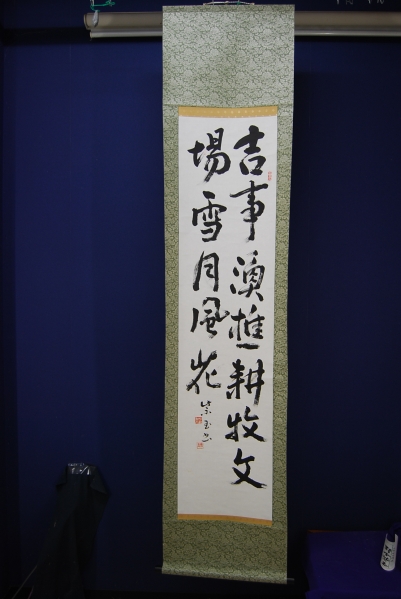 吉事漁樵耕牧文
場雪月風花